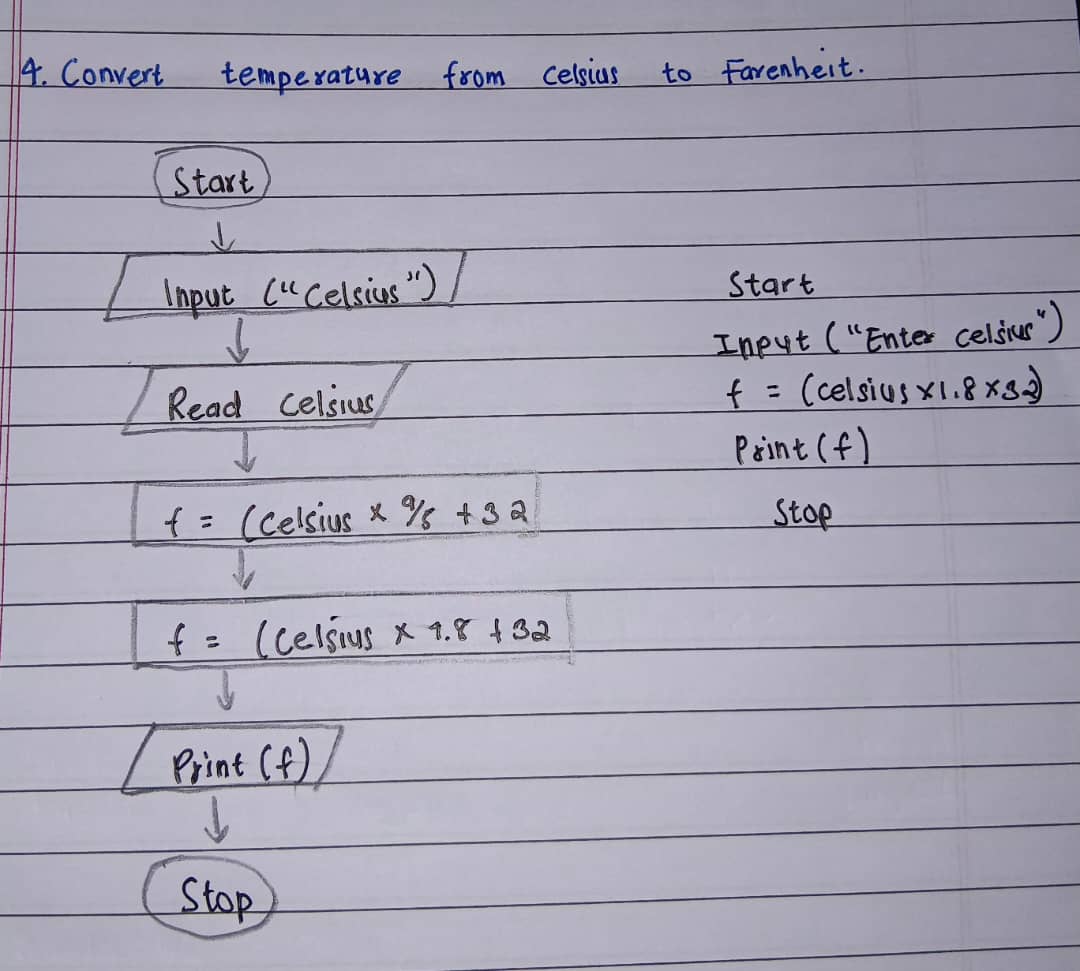 4. Convert temperature from Celsius to Farenheit.
Start
Input ("Celsius")
Read Celsius
f = (Celsius x 9/5 + 32
f = (Celsius x 1.8 + 32
Print (f)
Stop
Start
Input ("Enter celsius")
f = (celsius x 1.8 x 32)
Print (f)
Stop